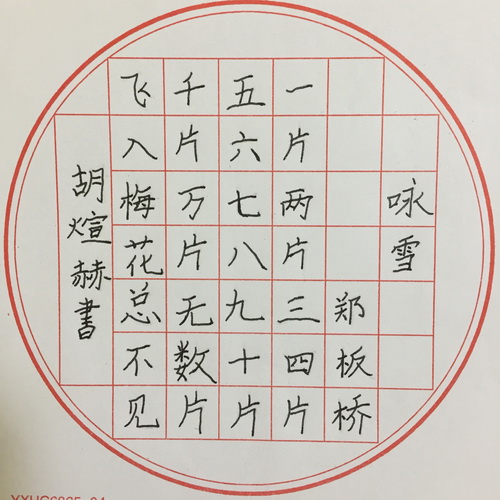 咏雪
郑板桥
一片两片三四片
五六七八九十片
千片万片无数片
飞入梅花总不见
胡煊赫書